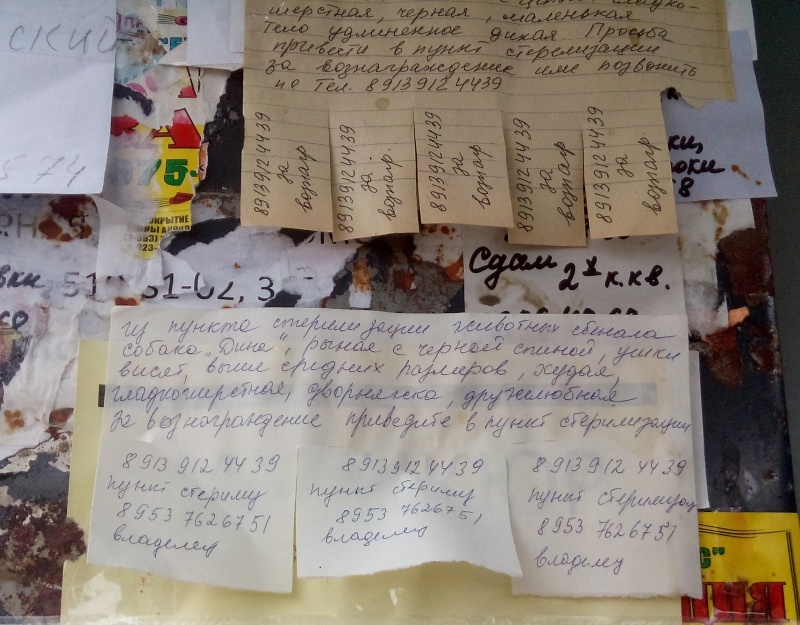 ский
574
шерстная, черная, маленькая
тело удлиненное дикая. Просьба
привести в пункт стерелизации
за вознаграждение или позвонить
по тел. 89139124439
89139124439
за
вознагр.
89139124439
за
вознагр.
89139124439
за
вознагр.
89139124439
за
вознагр.
89139124439
за
вознагр.
675-
Сдам 2х к.кв.
из пункта стерилизации животных сбежала
собака "Дина", рыжая с черной спиной, ушки
висят, выше средних размеров, худая,
гладкошерстная, дворняжка, дружелюбная
За вознаграждение приведите в пункт стерилизации
8 913 912 44 39
пункт стерилиз
8 953 7626751
владелец
8 913 912 44 39
пункт стерилиз
8953 7626751
владелец
8 913 912 44 39
пункт стерилизац
8 953 7626751
владелец